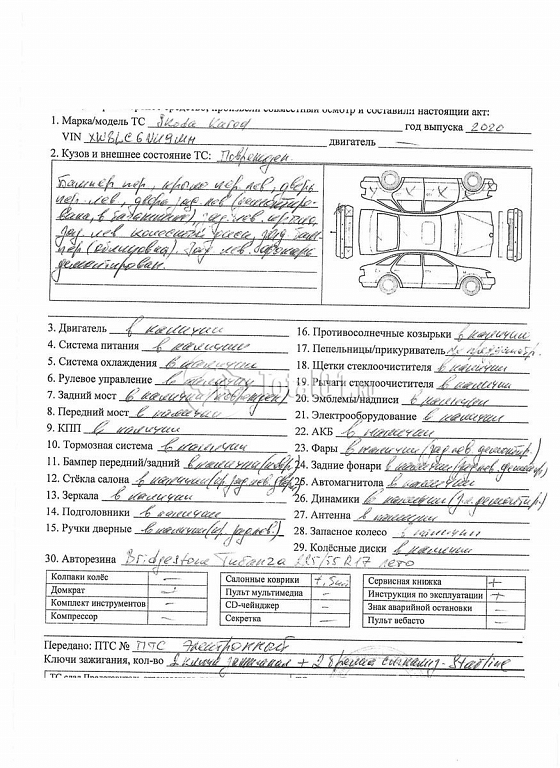 средство, произвели совместный осмотр и составили настоящий акт:
1. Марка/модель ТС Skoda Karoq год выпуска 2020
VIN двигатель —
2. Кузов и внешнее состояние ТС: Поврежден.
Бампер пер, крыло пер лев, дверь
пер лев, дверь зад лев (демонтиро-
вана, в багажнике), зад лев крыло,
зад лев колесный диск, зад бам-
пер (облицовка). Зад лев фонарь
демонтирован.
3. Двигатель в наличии
4. Система питания в наличии
5. Система охлаждения в наличии
6. Рулевое управление в наличии
7. Задний мост в наличии (поврежден)
8. Передний мост в наличии
9. КПП в наличии
10. Тормозная система в наличии
11. Бампер передний/задний в наличии (повр.)
12. Стёкла салона в наличии
13. Зеркала в наличии
14. Подголовники в наличии
15. Ручки дверные в наличии
16. Противосолнечные козырьки в наличии
17. Пепельницы/прикуриватель не предусмотр.
18. Щетки стеклоочистителя в наличии
19. Рычаги стеклоочистителя в наличии
20. Эмблемы/надписи в наличии
21. Электрооборудование в наличии
22. АКБ в наличии
23. Фары в наличии
24. Задние фонари в наличии (зад лев. демонтир.)
25. Автомагнитола в наличии
26. Динамики в наличии
27. Антенна в наличии
28. Запасное колесо в наличии
29. Колёсные диски в наличии
30. Авторезина Bridgestone Turanza 225/55 R17 лето
Колпаки колёс —
Домкрат —
Комплект инструментов —
Компрессор —
Салонные коврики +,
Пульт мультимедиа —
CD-чейнджер —
Секретка —
Сервисная книжка +
Инструкция по эксплуатации +
Знак аварийной остановки —
Пульт вебасто —
Передано: ПТС № ПТС Электронный
Ключи зажигания, кол-во 2 ключа зажигания + 2 брелка сигнализ. - Starline